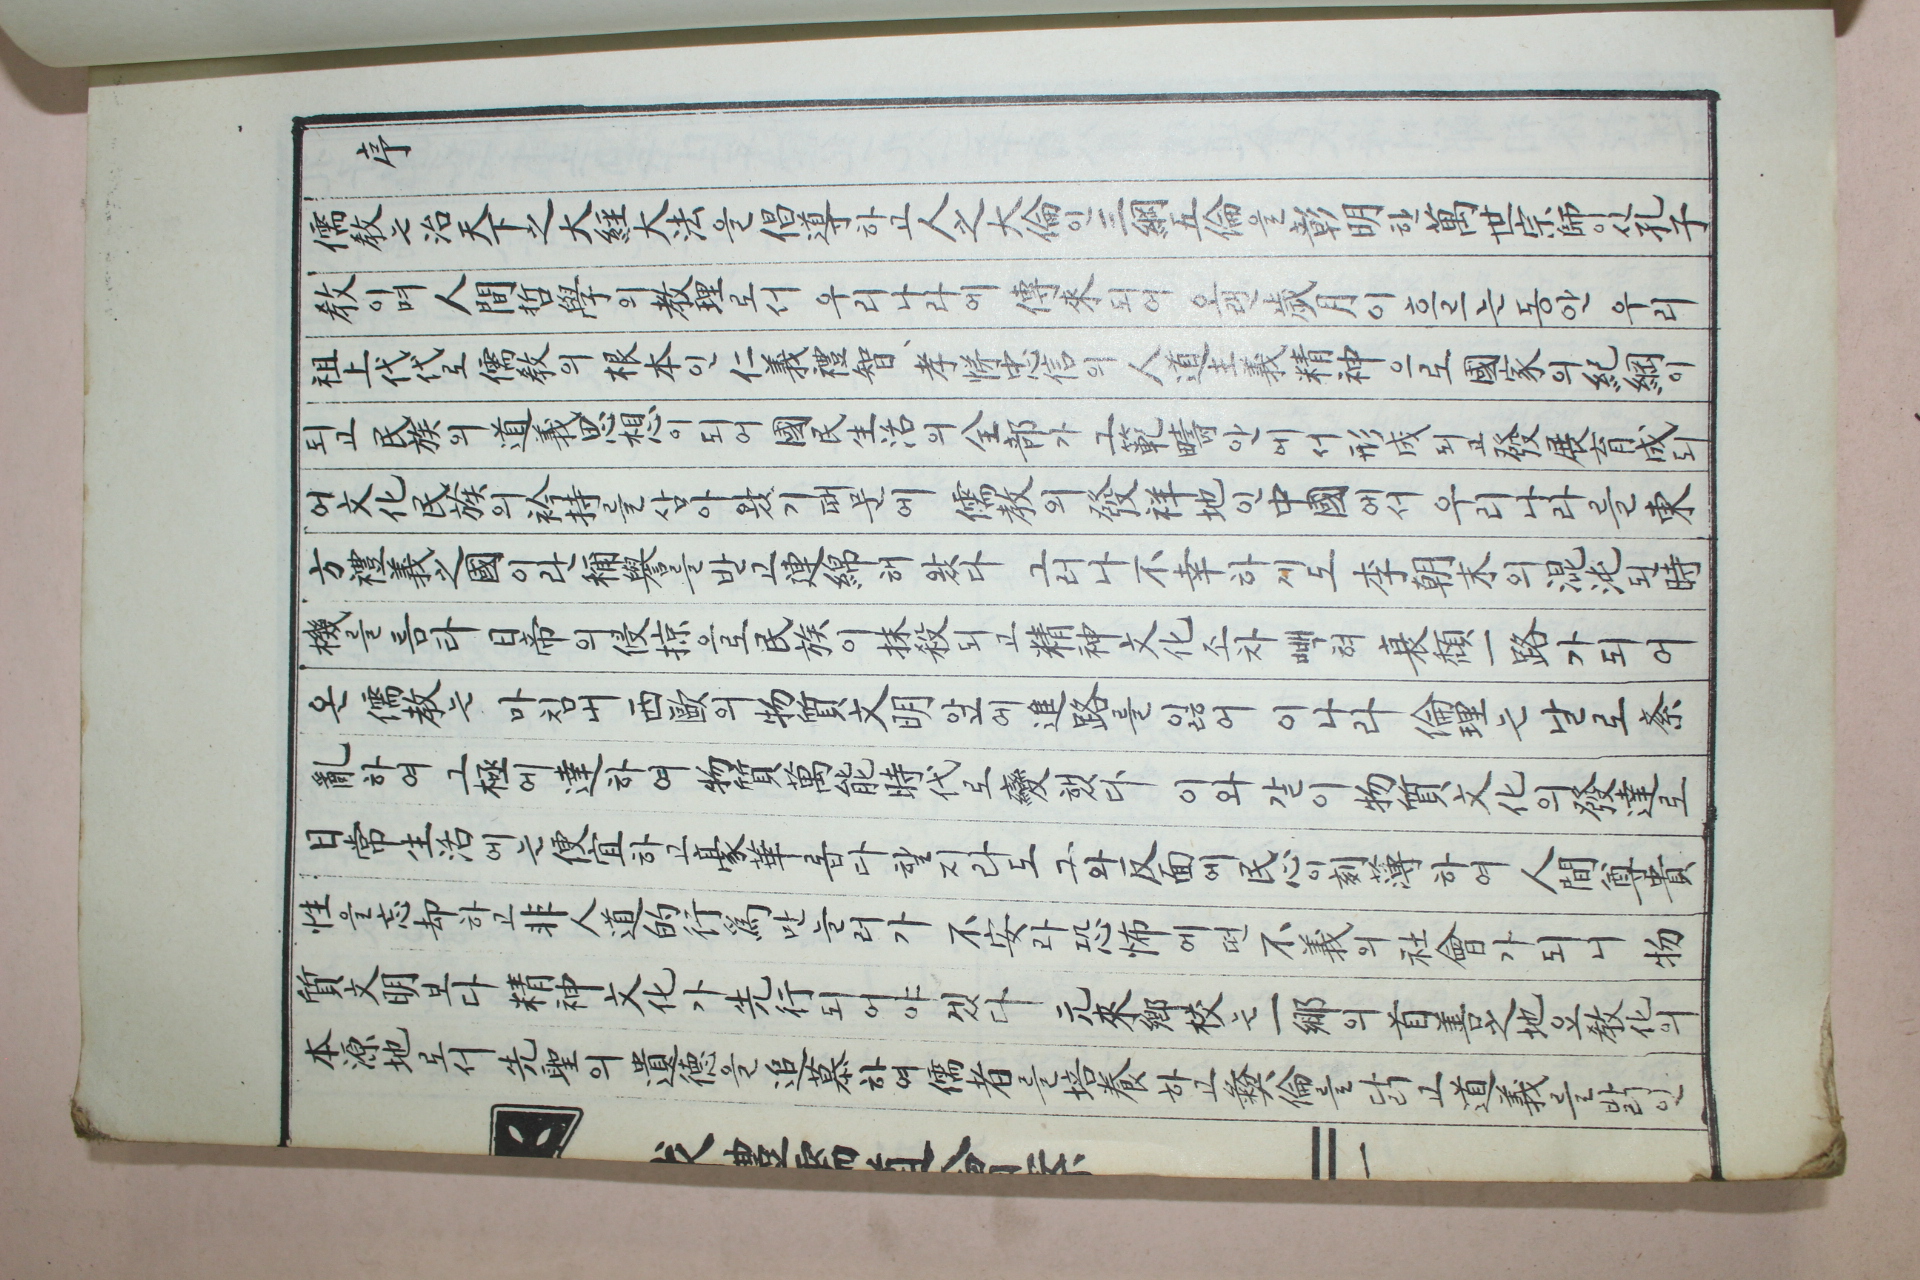 序
儒敎는 治天下之大經大法을 倡導하고 人之大倫인 三綱五倫을 彰明한 萬世宗師이신 孔子
敎이며 人間哲學의 敎理로서 우리나라에 傳來되어 오랜 歲月이 흐르는 동안 우리
祖上代代로 儒敎의 根本인 仁義禮智、孝悌忠信의 人道主義精神으로 國家의 紀綱이
되고 民族의 道義思想이 되어 國民生活의 全部가 그 範疇안에서 形成되고 發展育成되
어 文化民族의 衿持를 삼아왔기 때문에 儒敎의 發祥地인 中國에서 우리나라를 東
方禮義之國이란 稱譽를 받고 連綿해 왔다 그러나 不幸하게도 李朝末의 混沌된 時
機를 틈타 日帝의 侵掠으로 民族이 抹殺되고 精神文化조차 혀 衰頹一路가 되어
온 儒敎는 마침내 西歐의 物質文明앞에 進路를 잃어 이나라 倫理는 날로 紊
亂하여 그 極에 達하여 物質萬能時代로 變했다 이와같이 物質文化의 發達로
日常生活에는 便宜하고 豪華롭다 할지라도 그와 反面에 民心이 刻薄하여 人間尊貴
性을 忘却하고 非人道的行爲만 늘러가 不安과 恐怖에 떤 不義의 社會가 되니 物
質文明보다 精神文化가 先行되어야 겠다 元來鄕校는 一鄕의 首善之地요 敎化의
本源地로서 先聖의 遺德을 追慕하여 儒者를 培養하고 彝倫를 닭고 道義를 밝힌
一